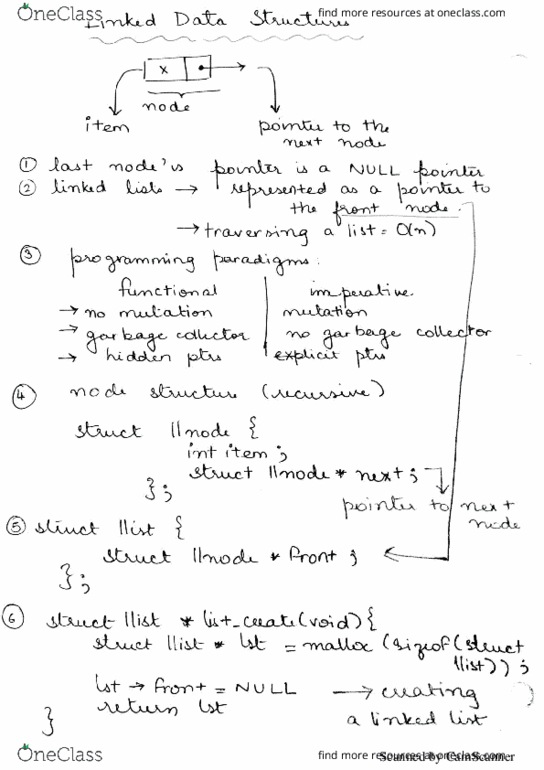 OneClass find more resources at oneclass.com
Linked Data Structures
x
node
item
pointer to the
next node
① last node's pointer is a NULL pointer
② linked lists → represented as a pointer to
the front node.
→ traversing a list = O(n)
③ programming paradigms:
functional imperative
→ no mutation mutation
→ garbage collector no garbage collector
→ hidden ptrs explicit ptrs
④ node structure (recursive)
struct llnode {
int item ;
struct llnode * next ;
} ;
pointer to next
node
⑤ struct llist {
struct llnode * front ;
} ;
⑥ struct llist * list_create(void) {
struct llist * lst = malloc (sizeof(struct
llist)) ;
lst → front = NULL → creating
return lst a linked list
}
OneClass find more resources at oneclass.com
Scanned by CamScanner